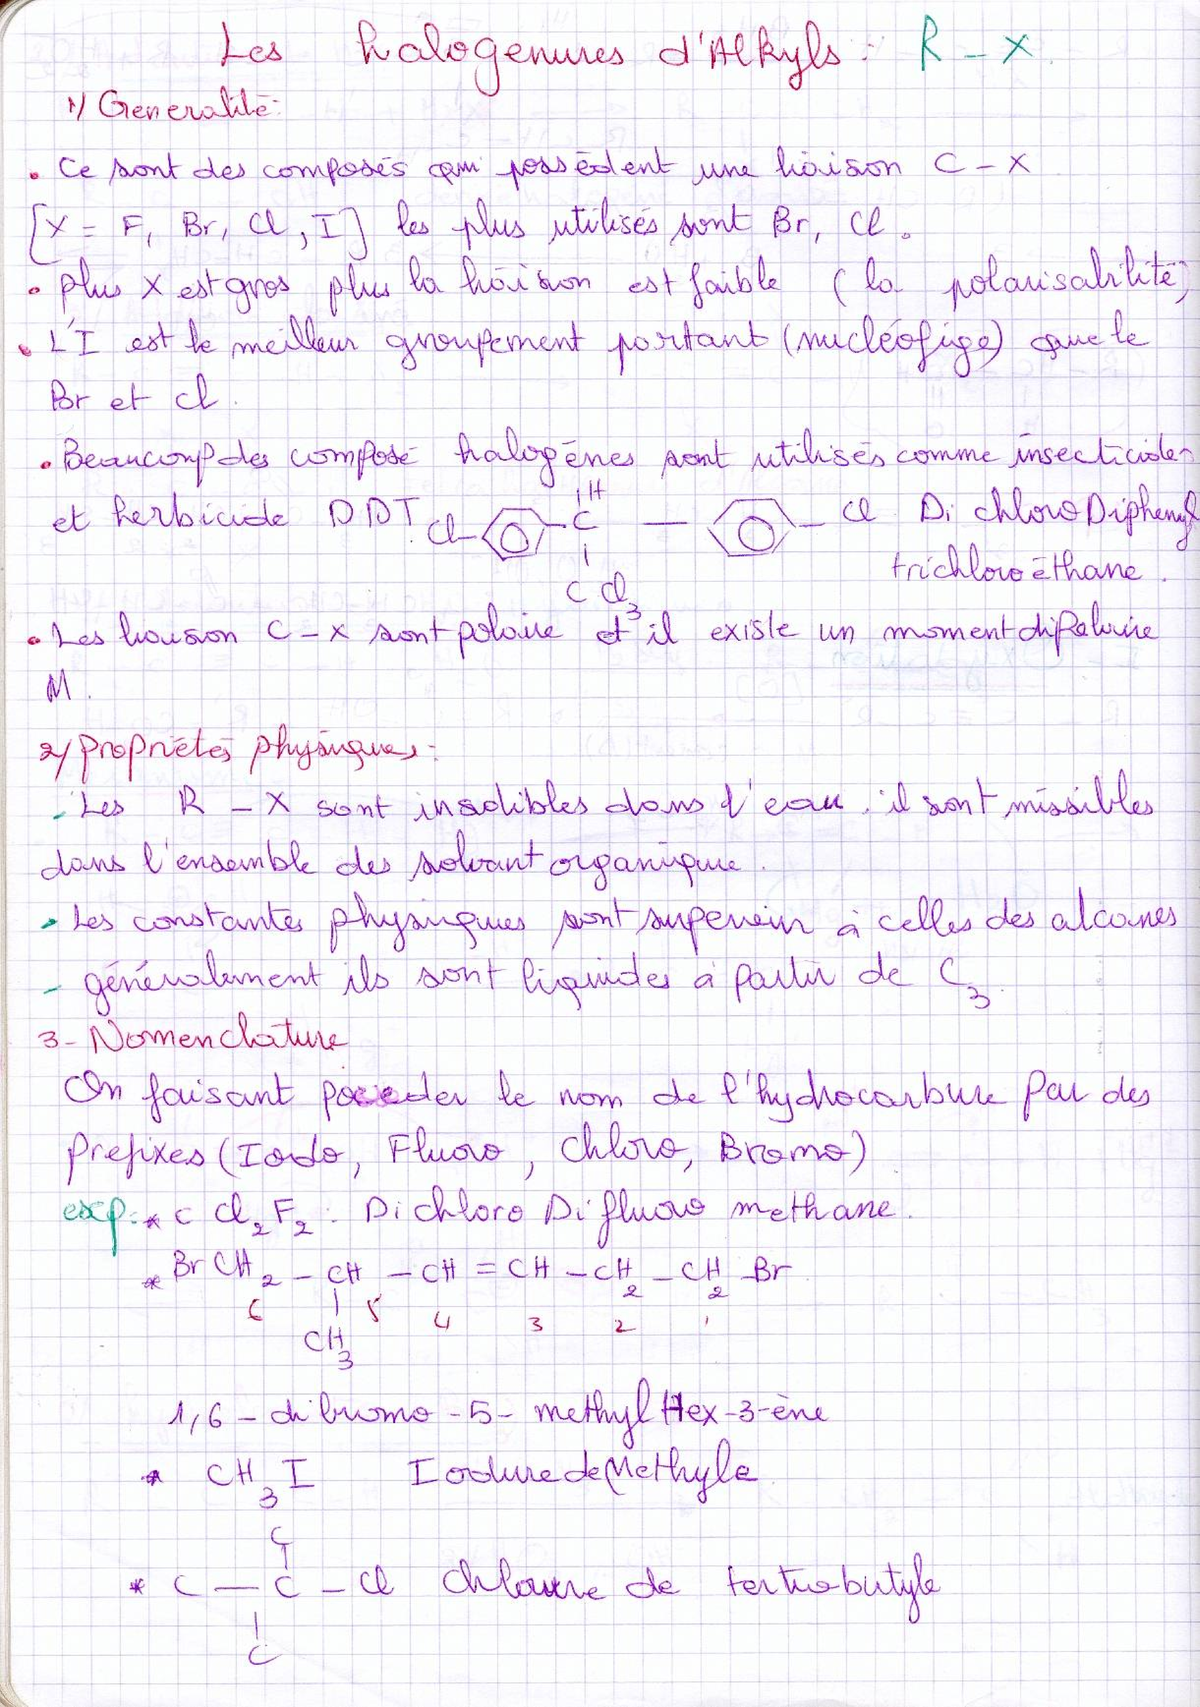 Les halogenures d'Alkyls : R - X.
1/ Generalité:
• Ce sont des composés qui possèdent une liaison C - X
[X = F, Br, Cl, I] les plus utilisés sont Br, Cl.
• plus X est gros plus la liaison est faible (la polarisabilité)
• L'I est le meilleur groupement partant (nucléofige) que le
Br et Cl.
• Beaucoup des composé halogènes sont utilisés comme insecticides
et herbicide DDT. Cl - C - Cl Di chloro Diphenyl
H
trichloro éthane.
C Cl3
• Les liaison C - X sont polaire et il existe un moment dipolaire
M.
2/ Propriétés physiques:
- Les R - X sont insolibles dans l'eau. il sont missibles
dans l'ensemble des solvant organique.
- Les constantes physiques sont superieur à celles des alcanes
- généralement ils sont liquides à partir de C3.
3- Nomenclature
On faisant poceder le nom de l'hydrocarbure Par des
Prefixes (Iodo, Fluoro, Chloro, Bromo)
exp: * C Cl2 F2 : Di chloro Di fluoro methane.
* Br CH2 - CH - CH = CH - CH2 - CH2 - Br
6 5 4 3 2 1
CH3
1,6 - di bromo - 5 - methyl Hex-3-ène
* CH3 I Iodure de Methyle
C
* C - C - Cl chlorure de tertiobutyle
C